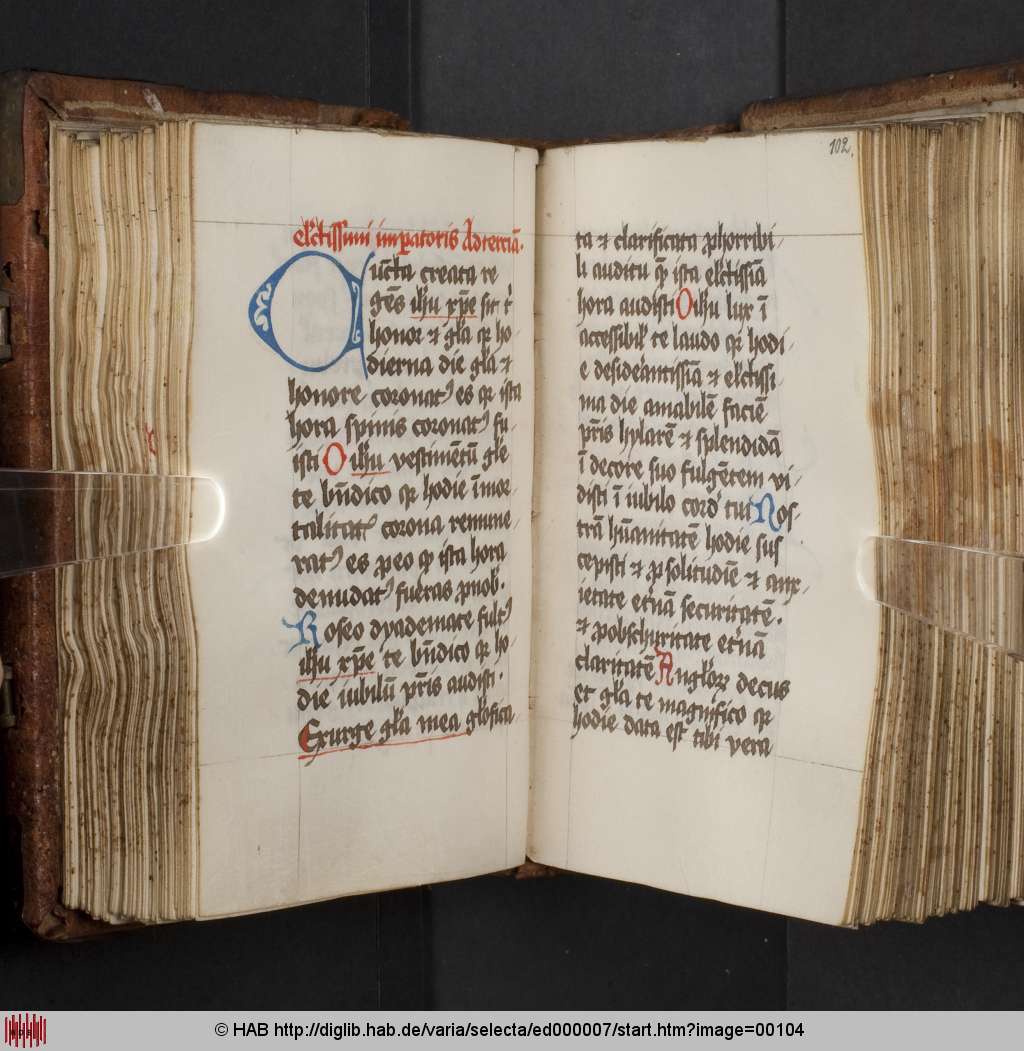 elc̄tissimi imp̱atoris Ad terciā.
Cūcta creata re
gēs ihu xp̄e sit t'
honor et gl̄a qr ho
dierna die gl̄a et
honore coronat9 es qr ista
hora spinis coronat9 fu
isti O ihu vestimētū gl̄e
te bn̄dico qr hodie īmor
talitat9 corona remune
rat9 es p eo qd ista hora
denudat9 fueras p nob.
Roseo dyademate fult9
ihu xp̄e te bn̄dico qr ho
die iubilū pr̄is audisti.
Exurge gl̄a mea gl̄ifica
102.
ta et clarificata p horribi
li auditu qm ista elc̄tissīa
hora audisti O ihu lux ī
accessibil' te laudo qr hodi
e desiderantissīa et elc̄tissi
ma die amabilē faciē
pr̄is hylarē et splendidā
ī decore suo fulgētem vi
disti ī iubilo cord' tui Nos
trā hūanitatē hodie sus
cepisti et p solitudīe et anx
ietate et'nā securitatē.
et p obschuritate et'nā
claritatē Anglor̄ decus
et gl̄a te magnifico qr
hodie data est tibi vera
© HAB http://diglib.hab.de/varia/selecta/ed000007/start.htm?image=00104